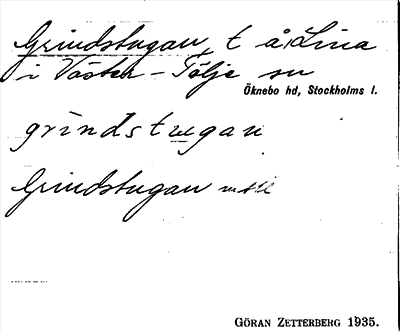 Grindstugan, t å Lina
i Väster-Tälje sn
Öknebo hd, Stockholms l.
grindstugan
Grindstugan
GÖRAN ZETTERBERG 1935.